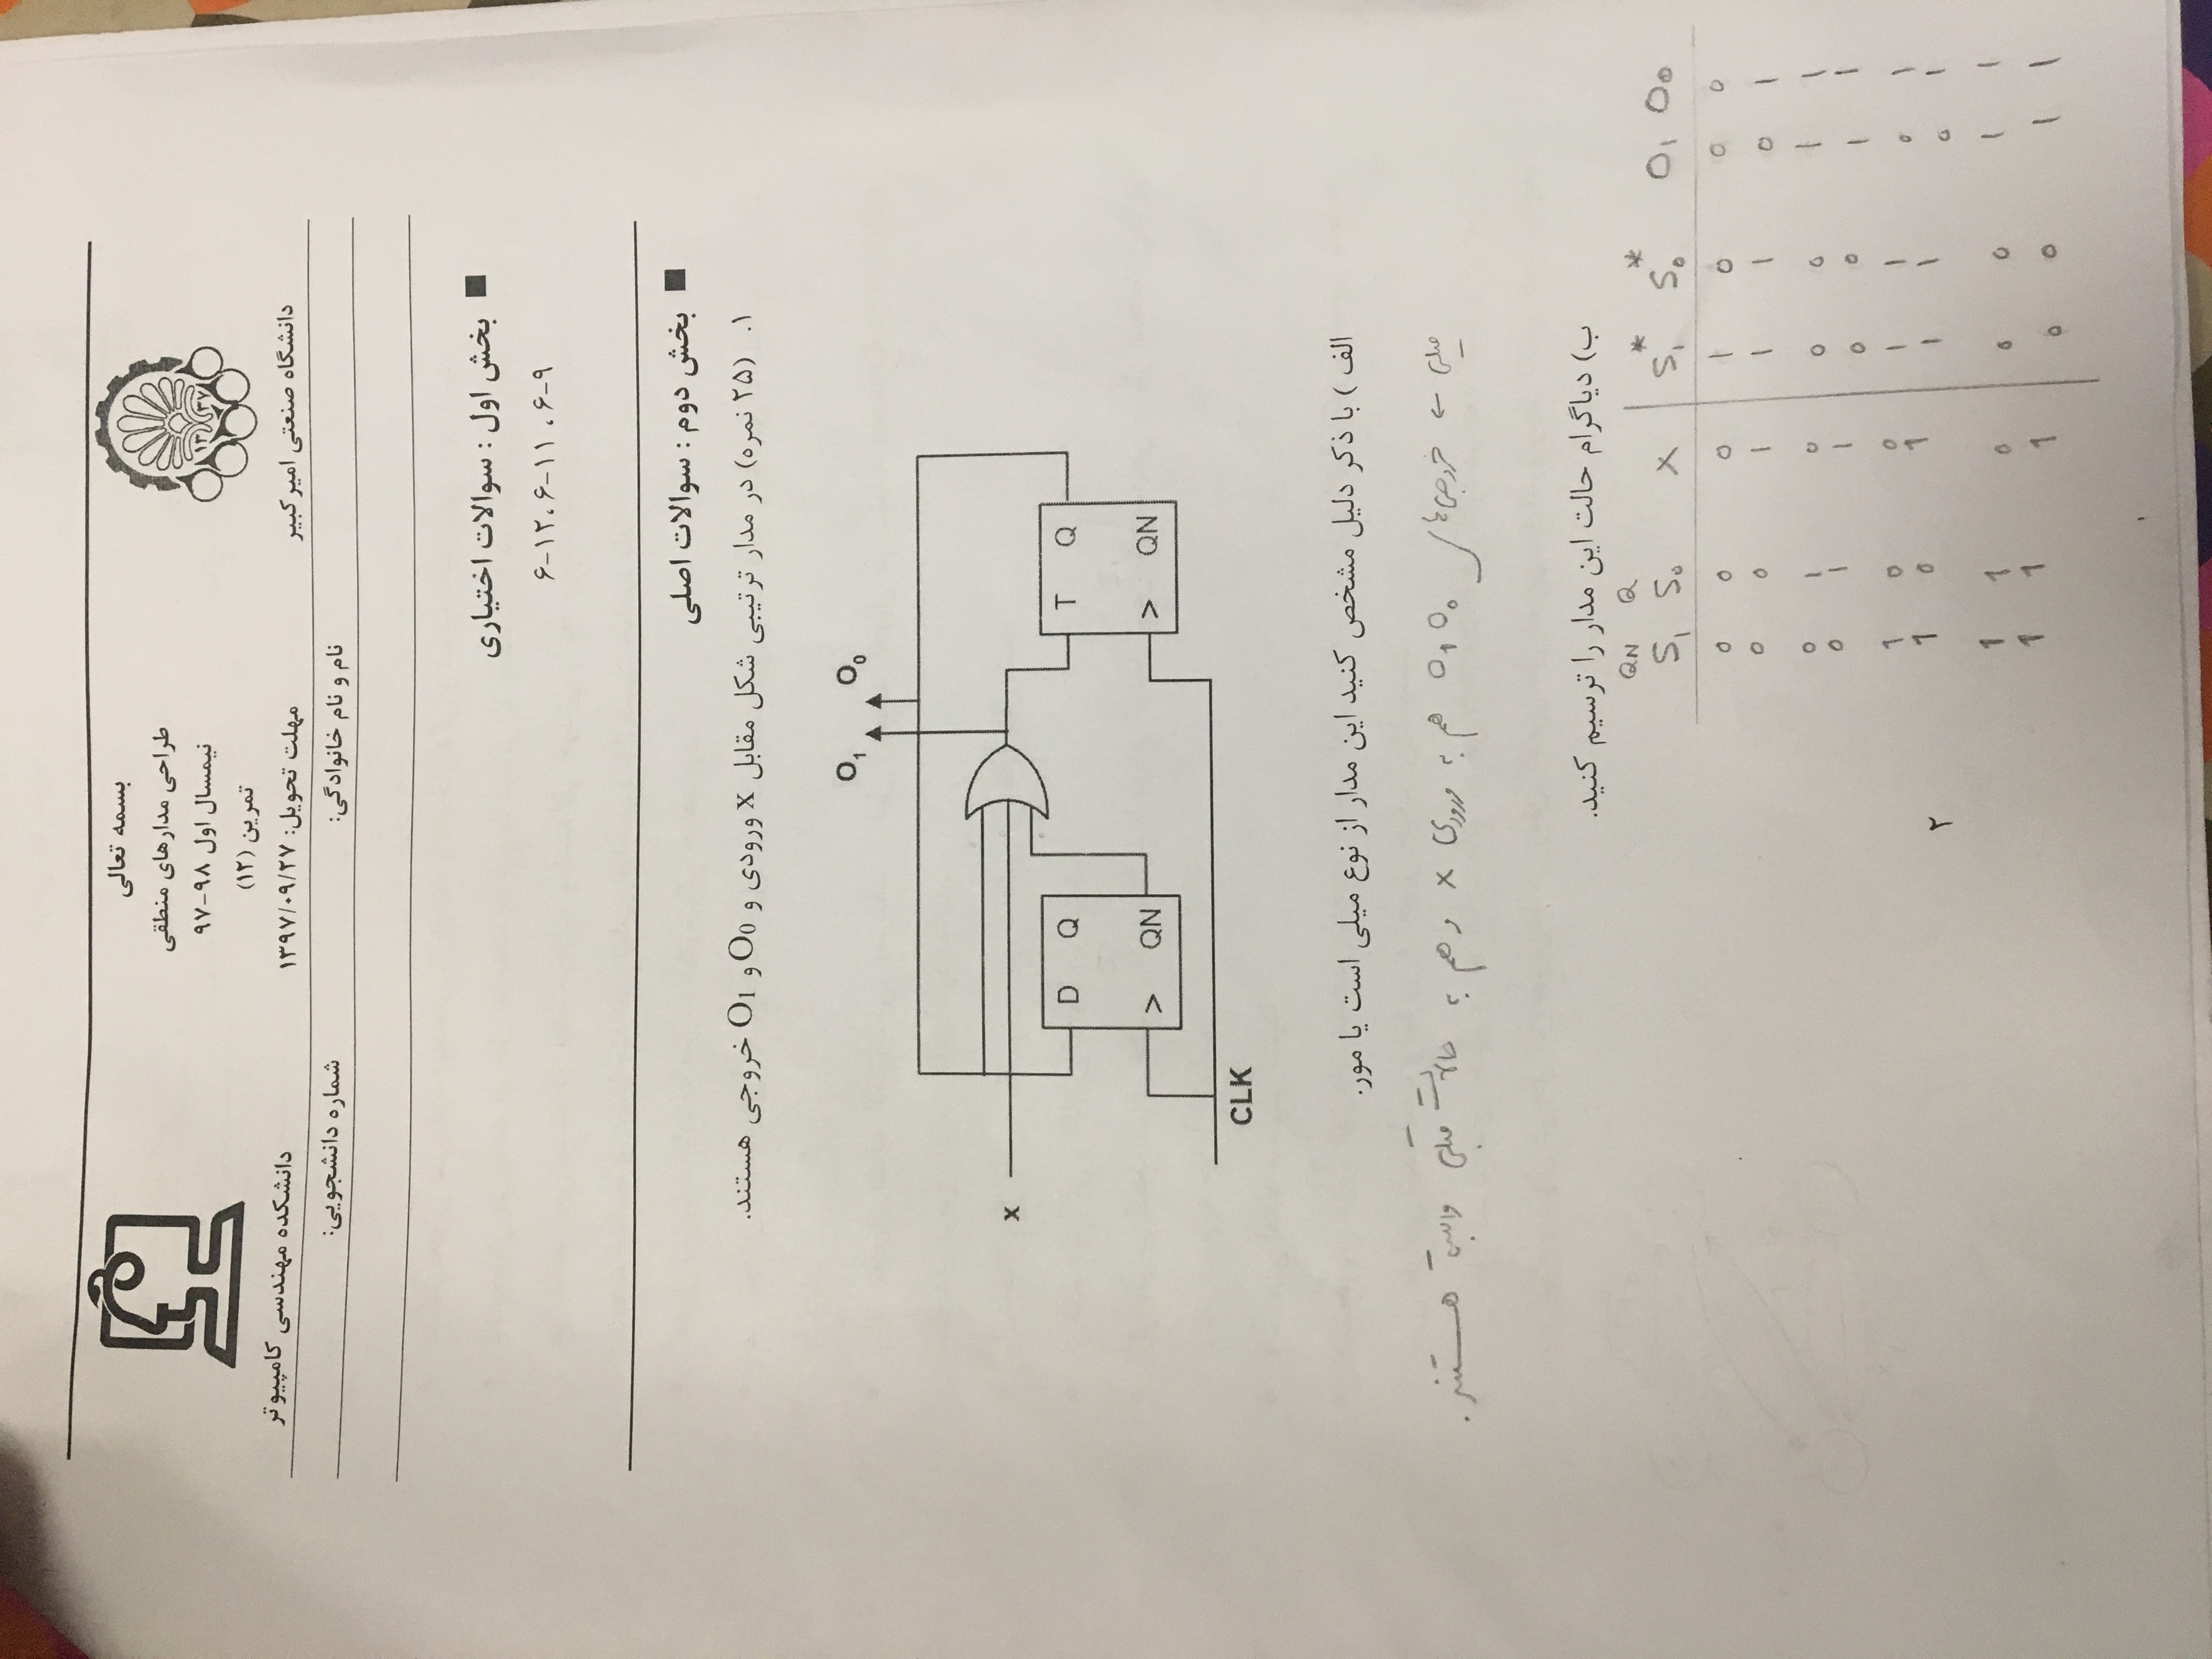 بسمه تعالی
طراحی مدارهای منطقی
نیمسال اول ۹۸-۹۷
تمرین (۱۲)
مهلت تحویل: ۱۳۹۷/۰۹/۲۷
۱۳ ۳۷
دانشگاه صنعتی امیرکبیر
دانشکده مهندسی کامپیوتر
نام و نام خانوادگی: شماره دانشجویی:
■ بخش اول : سوالات اختیاری
۶-۹ ، ۶-۱۱ ،۶-۱۲
■ بخش دوم : سوالات اصلی
۱. (۲۵ نمره) در مدار ترتیبی شکل مقابل x ورودی و O0 و O1 خروجی هستند.
O1 O0
x
D Q
> QN
T Q
> QN
CLK
الف ) با ذکر دلیل مشخص کنید این مدار از نوع میلی است یا مور.
میلی ← خروجی‌های O1 O0 هم به ورودی x و هم به حالات قبلی وابسته هستند.
ب) دیاگرام حالت این مدار را ترسیم کنید.
QN Q
S1 S0 X S1* S0* O1 O0
0 0 0 1 0 0 0
0 0 1 1 1 0 1
0 1 0 0 0 1 1
0 1 1 0 0 1 1
1 0 0 1 1 0 1
1 0 1 1 1 0 1
1 1 0 0 0 1 1
1 1 1 0 0 1 1
۲